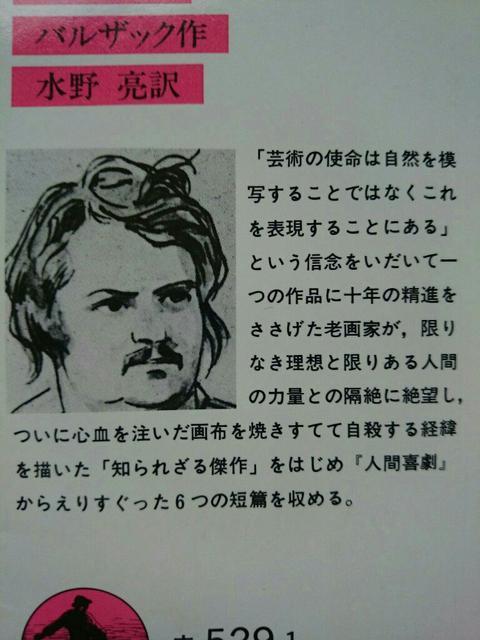 バルザック作
水野 亮訳
「芸術の使命は自然を模
写することではなくこれ
を表現することにある」
という信念をいだいて一
つの作品に十年の精進を
ささげた老画家が，限り
なき理想と限りある人間
の力量との隔絶に絶望し，
ついに心血を注いだ画布を焼きすてて自殺する経緯
を描いた「知られざる傑作」をはじめ『人間喜劇』
からえりすぐった6つの短篇を収める。
529-1